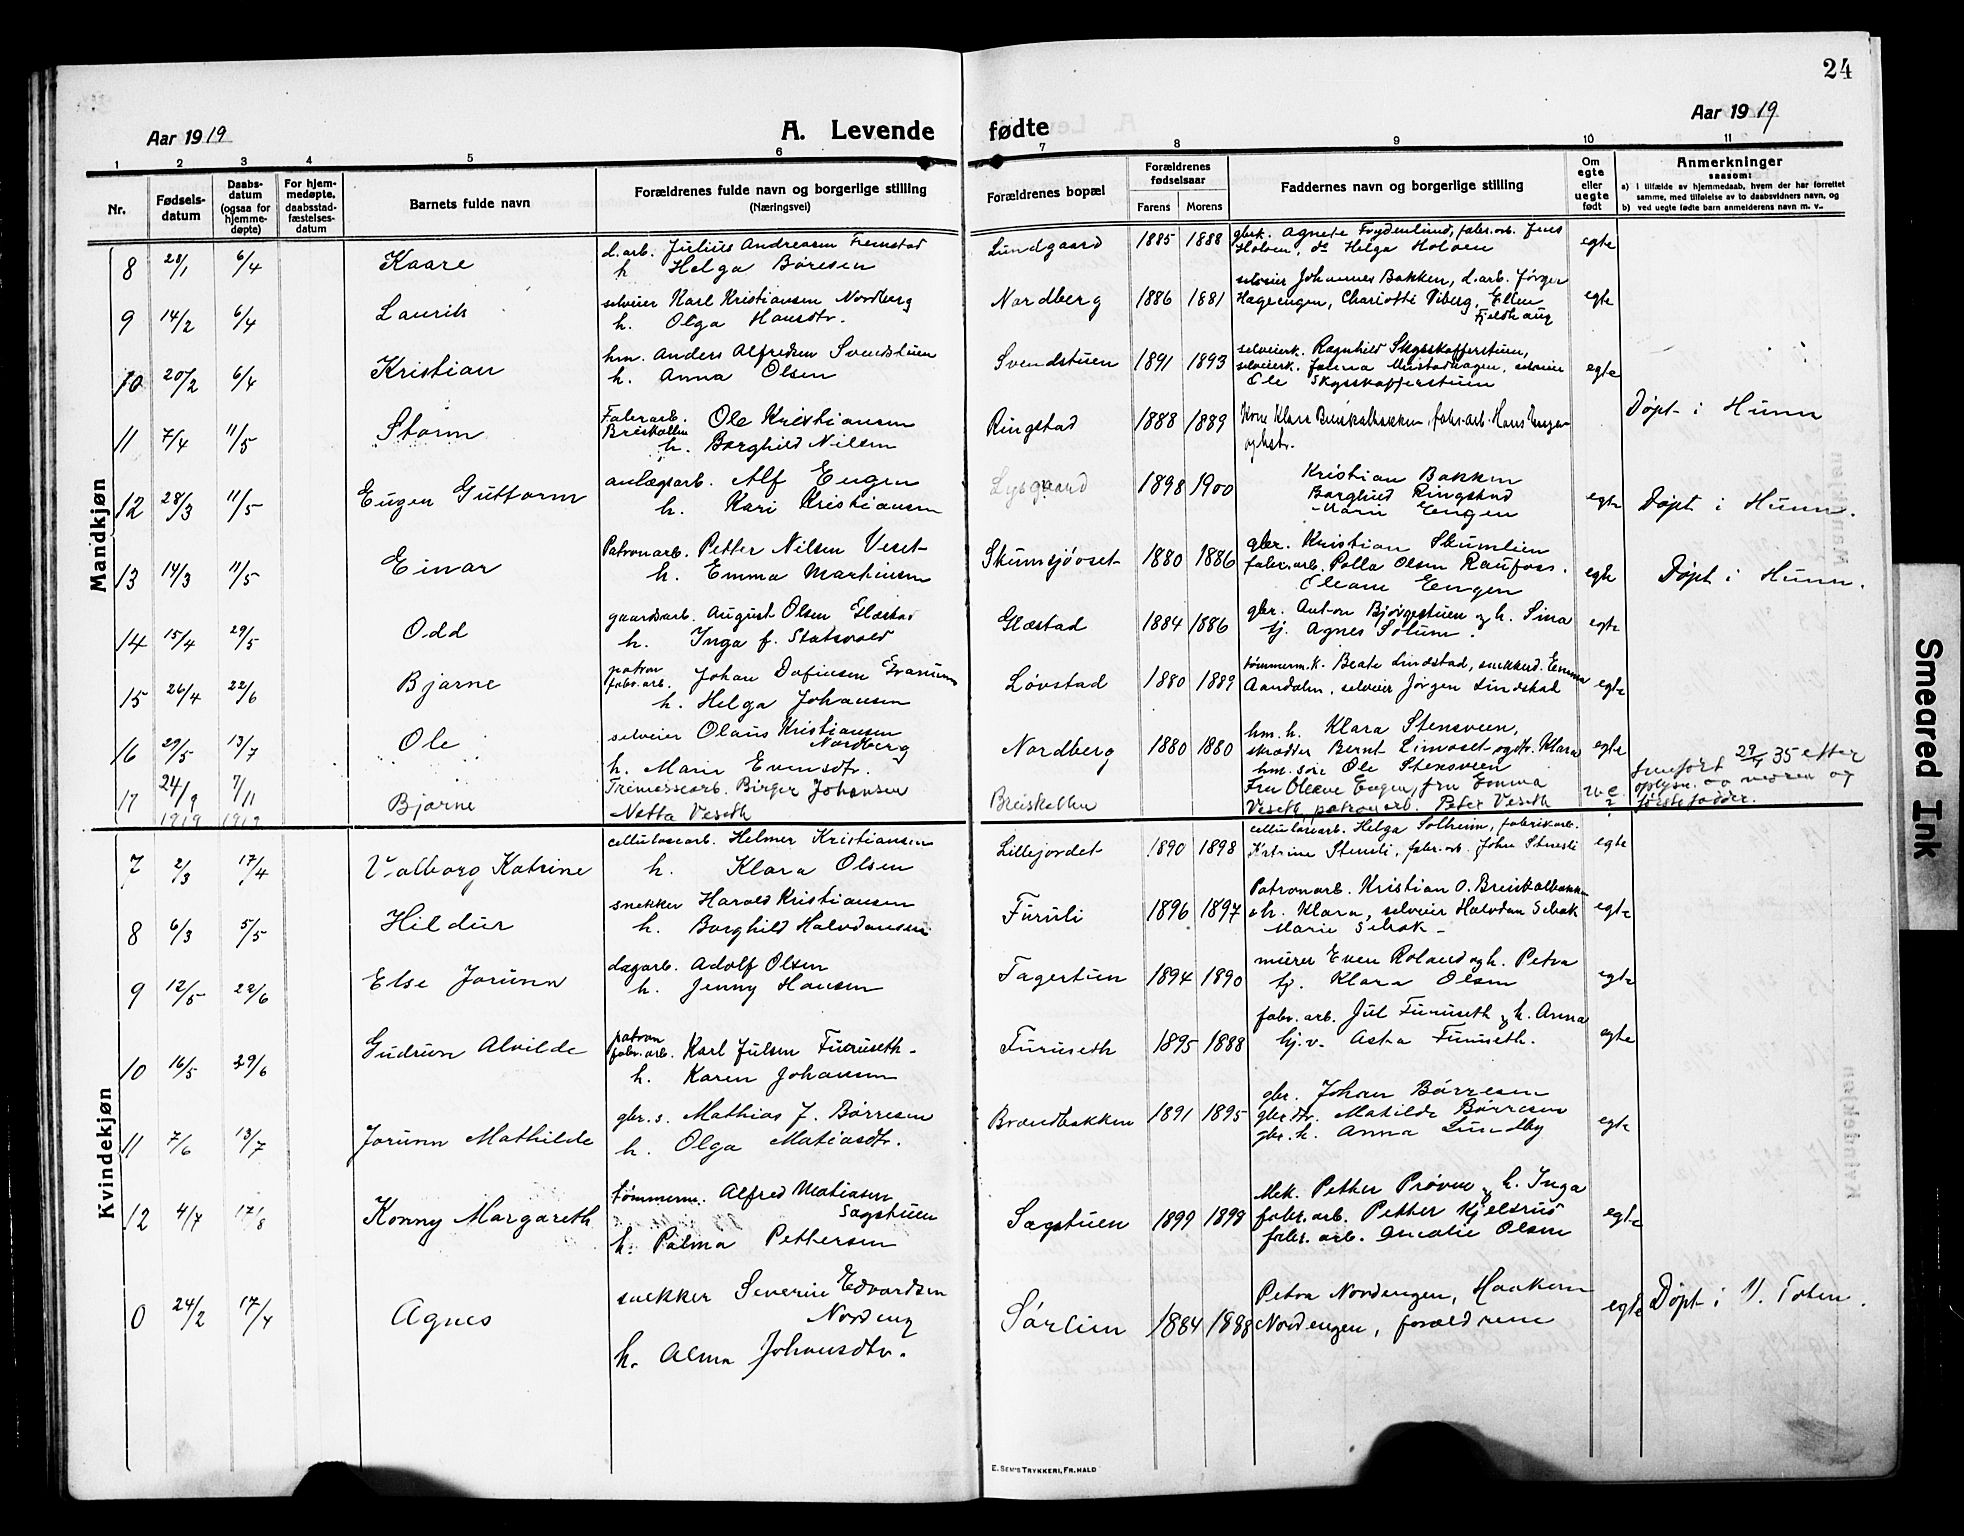 24
Aar 1919
A. Levende fødte
Aar 1919
1 2 3 4 5 6 7 8 9 10 11
Nr.
Fødsels-
datum
Daabs-
datum
(ogsaa for
hjemme-
døpte)
For hjem-
medøpte,
daabsstad-
fæstelses-
datum
Barnets fulde navn
Forældrenes fulde navn og borgerlige stilling
(Næringsvei)
Forældrenes bopæl
Forældrenes
fødselsaar
Farens Morens
Faddernes navn og borgerlige stilling
Om
egte
eller
uegte
født
Anmerkninger
saasom:
a) i tilfælde av hjemmedaab, hvem der har forrettet
samme, med tilføielse av to daabsvidners navn, og
b) ved uegte fødte barn anmelderens navn m. v.
Mandkjøn
8 28/1 6/4 Kaare
d.arb. Julius Andreasen Fremstad
h Helga Børesen
Lundgaard 1885 1888
gbrk. Agnete Frydenlund, fabr.arb. Jens
Holven, do Helga Holven
egte
9 14/2 6/4 Laurits
selveier Karl Kristiansen Nordberg
h. Olga Hansdtr.
Nordberg 1886 1881
selveier Johannes Bakken, d.arb. Jørgen
Hageengen, Charlotte Viberg, Ellen
Fjeldhaug
egte
10 20/2 6/4 Kristian
hm. Anders Alfredsen Svendstuen
h. Anna Olsen
Svendstuen 1891 1893
selveierk. Ragnhild Skysskafferstuen,
selveierk. Mustadhagen, selveier
Ole Skysskafferstuen
egte
11 7/4 11/5 Storm
Fabr.arb. Ole Kristiansen
Breiskallen
h. Borghild Nilsen
Ringstad 1888 1889
Kone Klara Breiskalbakken, fabr.arb. Hans Engen
og hstr.
Døpt i Hunn
12 28/3 11/5 Eugen Guttorm
anlægsarb. Alf Engen
h. Kari Kristiansen
Lysgaard 1898 1900
Kristian Bakken
Borghild Ringstad
Marie Engen
egte
Døpt i Hunn.
13 14/3 11/5 Einar
Patronarb. Petter Nilsen Veset
h. Emma Martinsen
Skumsjøvset 1880 1886
gbr. Kristian Skumlien
fabr.arb. Palla Olsen Raufoss.
Eleane Engen
egte
Døpt i Hunn.
14 15/4 29/5 Odd
gaardsarb. August Olsen Glæstad
h. Inga f. Statsvold
Glæstad 1884 1886
gbr. Anton Bjørgestuen og h. Sina
tj. Agnes Solum.
egte
15 26/4 22/6 Bjarne
patron
fabr.arb. Johan Dofinsen Granum
h. Helga Johansen
Løvstad 1880 1889
tømmerm.k. Beate Lindstad, snekkerd. Emma
Aandalen, selveier Jørgen Lindstad
egte
16 29/5 13/7 Ole
selveier Olaus Kristiansen
Nordberg
h. Marie Evensdtr.
Nordberg 1880 1880
hm. h. Klara Stensveen,
skrædder Bernt Limoset og dtr. Klara
hm. søn Ole Stensveen
egte
17 24/9 1919 7/11 1919 Bjarne
Tremassearb. Birger Johansen
Netta Veseth
Breiskallen
Fru Oleane Engen, fru Emma
Veseth, patronarb. Peter Veseth
u.e.
?
Innført 29/4 35 efter
oplysn. og
første fadder.
Kvindekjøn
7 2/3 17/4 Valborg Katrine
cellulosearb. Helmer Kristiansen
h. Klara Olsen
Lillejordet 1890 1898
cellulosearb. Helga Solheim, fabrikarb.
Katrine Stensli, fabr.arb. John Stensli
egte
8 6/3 5/5 Hildur
snekker Harald Kristiansen
h. Borghild Halvdansen
Furuli 1896 1897
Patronarb. Kristian O. Breiskalbakken
o h. Klara, selveier Halvdan Sebak
Marie Sebak
egte
9 12/5 22/6 Else Jorunn
dagarb. Adolf Olsen
h. Jenny Hansen
Fagertun 1894 1890
murer Even Roland og h. Petra
tj. Klara Olsen
egte
10 16/5 29/6 Gudrun Alvilde
patron
fabr.arb. Karl Julsen Furuseth
h. Karen Johansen
Furuseth 1895 1888
fabr. arb. Jul Furuseth og h. Anna
hj.v. Asta Furuseth.
egte
11 7/6 13/7 Jorunn Mathilde
gbr. s. Mathias J. Børresen
h. Olga Matiasdtr.
Brændbakken 1891 1895
gbr. Johan Børresen
gbr.dtr. Matilde Børresen
gbr. h. Anna Lundby
egte
12 4/7 17/8 Konny Margareth
tømmerm. Alfred Matiasen
Sagstuen
h. Palma Pettersen
Sagstuen 1899 1899
Mek. Petter Prøven og h. Inga
fabr.arb. Petter Kjelsrud
fabr. arb. Amalie Olsen
egte
0 24/2 17/4 Agnes
snekker Severin Edvardsen
Nordeng
h. Alma Johansdtr.
Sørlien 1884 1888
Petra Nordengen, Haakon
Nordengen, forældrene
egte
Døpt i V. Toten.
E. Sem's Trykkeri, Fr.hald
Smeared Ink